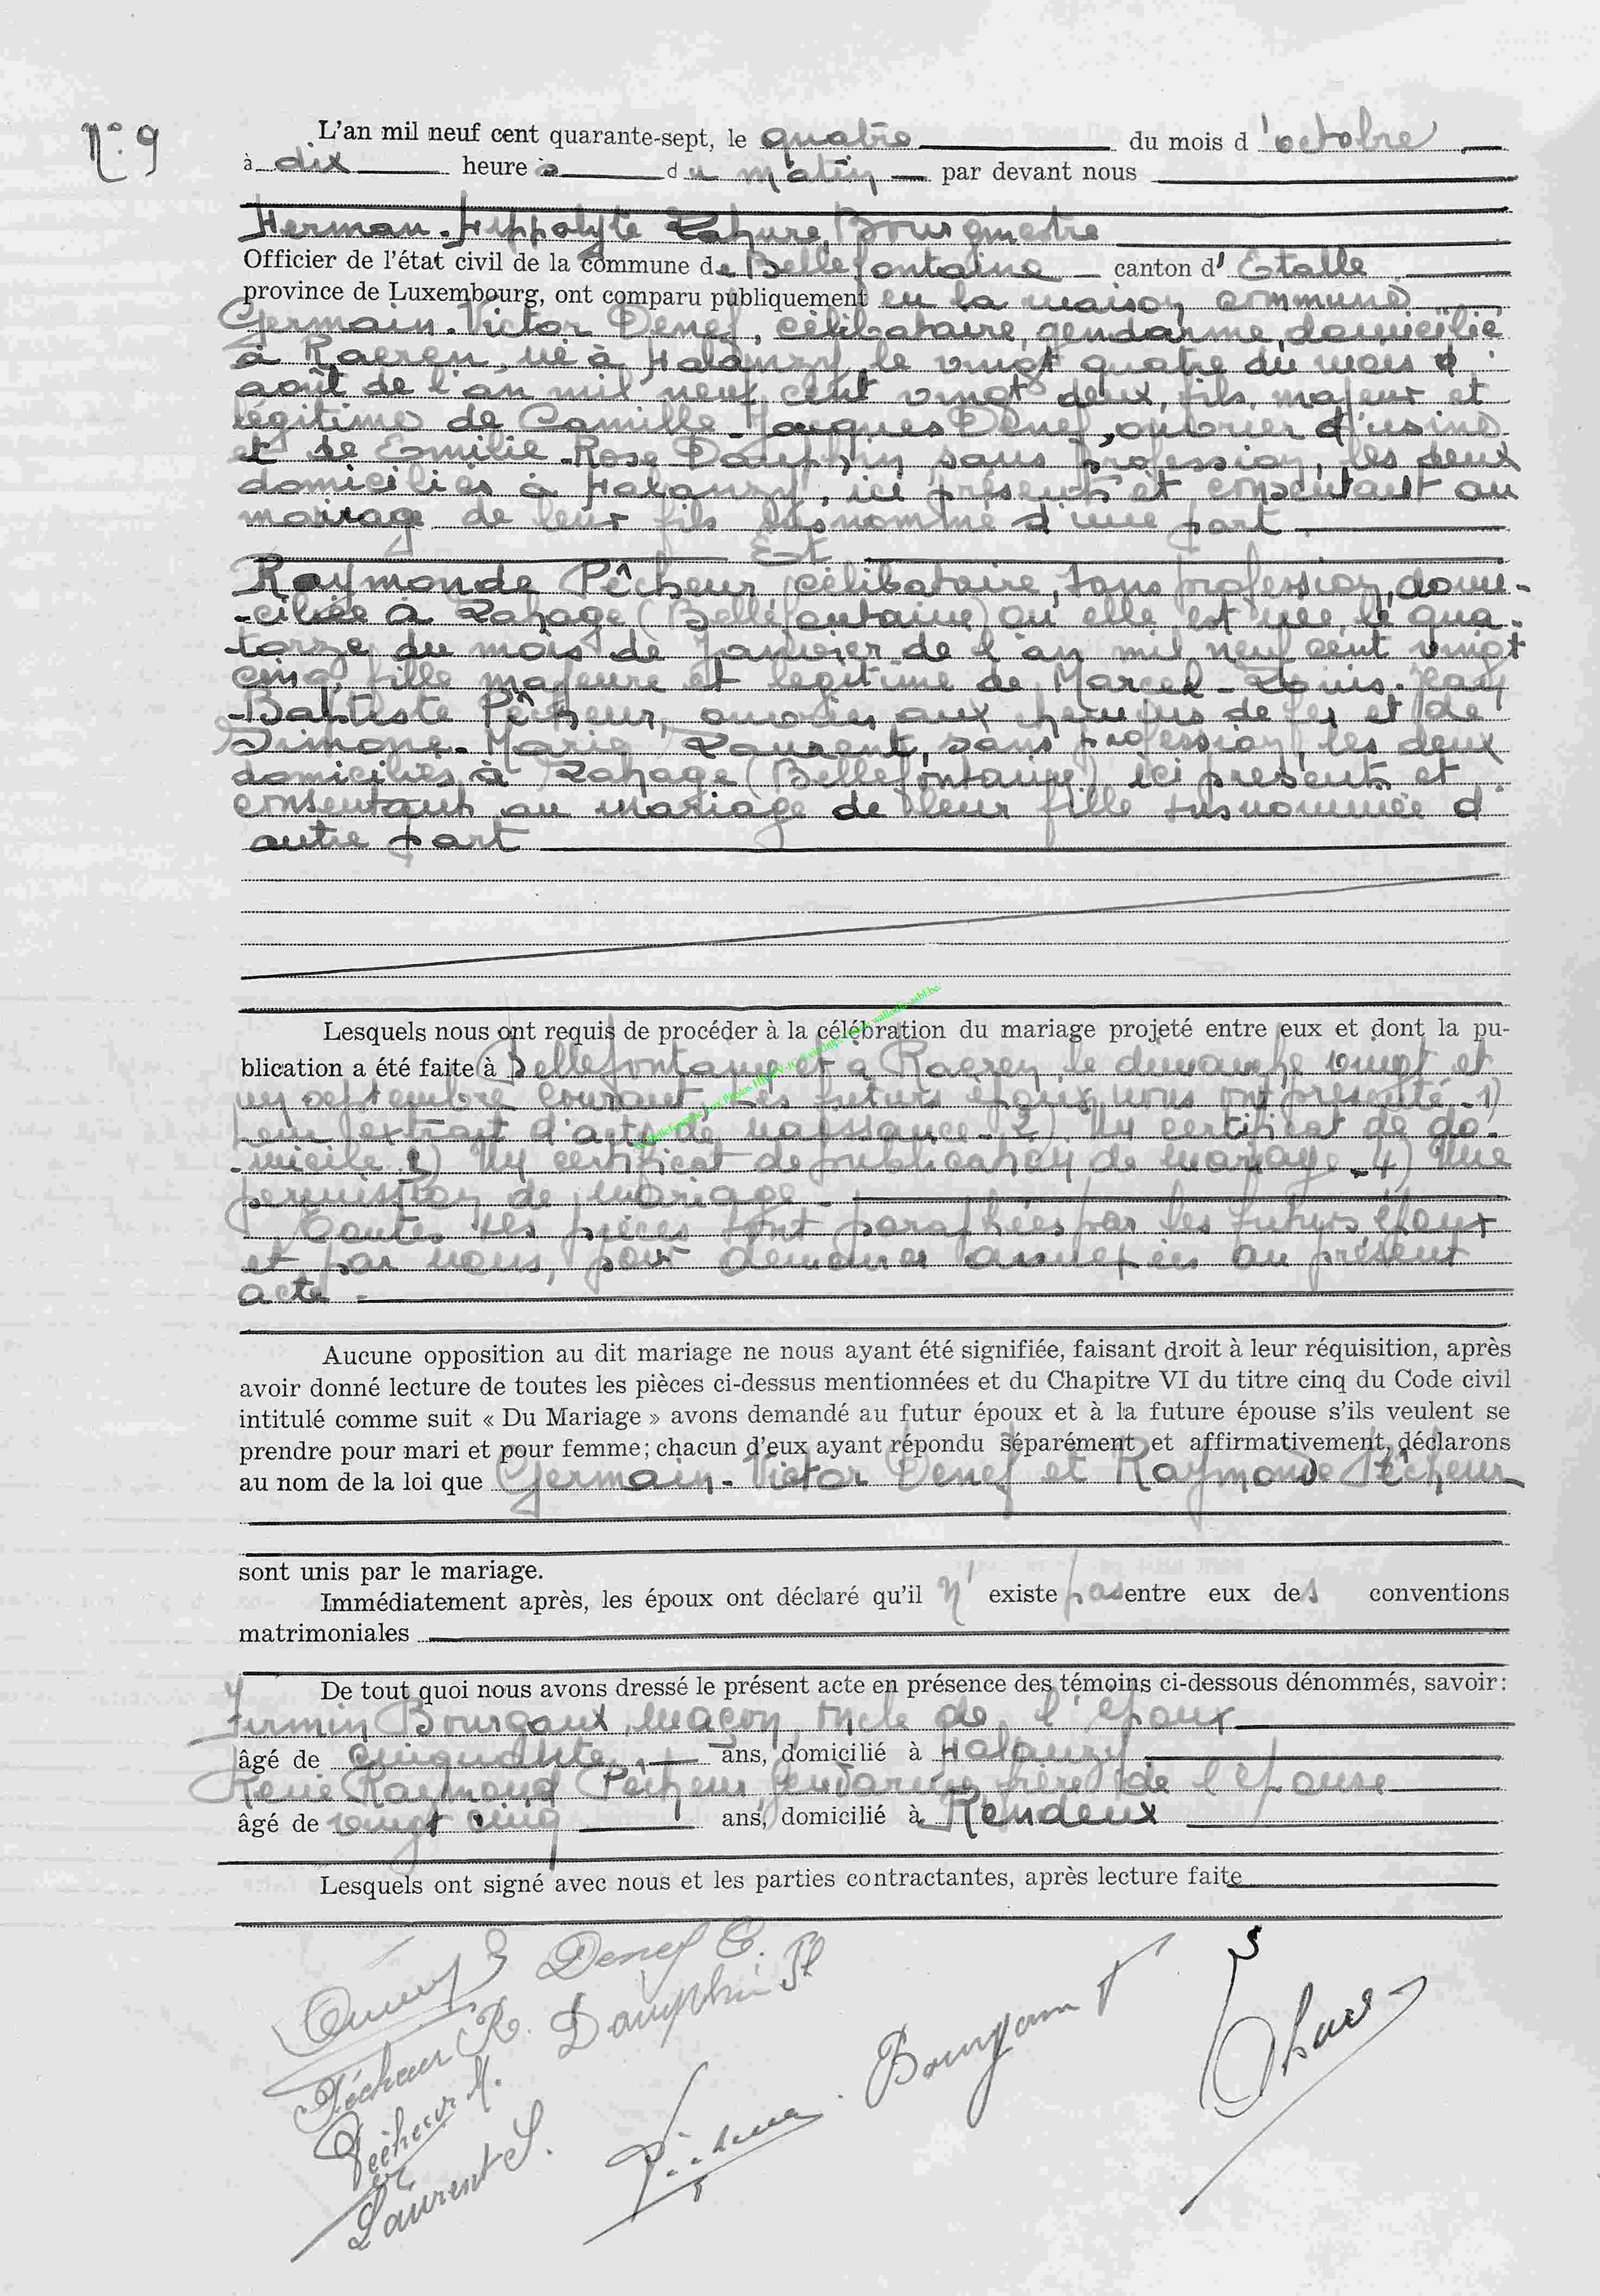 N° 9
L'an mil neuf cent quarante-sept, le quatre du mois d'octobre
à dix heures du matin par devant nous
Herman-Hippolyte Lahure, Bourgmestre
Officier de l'état civil de la commune de Bellefontaine canton d'Etalle
province de Luxembourg, ont comparu publiquement en la maison commune
Germain-Victor Denef, célibataire, gendarme, domicilié
à Raeren, né à Halanzy, le vingt quatre du mois d'
août de l'an mil neuf cent vingt deux, fils, majeur et
légitime de Camille-Jacques Denef, ouvrier d'usine
et de Emilie-Rose Dauphin sans profession, les deux
domiciliés à Halanzy, ici présents et consentant au
mariage de leur fils susnommé d'une part
Et
Raymonde Pêcheur, célibataire, sans profession, domi-
-ciliée à Lahage (Bellefontaine) où elle est née, le qua-
torze du mois de Janvier de l'an mil neuf cent vingt
cinq, fille majeure et légitime de Marcel-Louis-Jean
-Baptiste Pêcheur, ouvrier aux chemins de fer et de
Simone-Marie Laurent, sans profession, les deux
domiciliés à Lahage (Bellefontaine) ici présents et
consentant au mariage de leur fille susnommée d'
autre part
Lesquels nous ont requis de procéder à la célébration du mariage projeté entre eux et dont la pu-
blication a été faite à Bellefontaine et à Raeren, le dimanche vingt et
un septembre courant. Les futurs époux nous ont présenté 1)
leur extrait d'acte de naissance - 2) Un certificat de do-
-micile 3) Un certificat de publication de mariage - 4) Une
permission de mariage -
Toutes ces pièces sont paraphées par les futurs époux
et par nous, pour demeurer annexées au présent
acte.
Aucune opposition au dit mariage ne nous ayant été signifiée, faisant droit à leur réquisition, après
avoir donné lecture de toutes les pièces ci-dessus mentionnées et du Chapitre VI du titre cinq du Code civil
intitulé comme suit « Du Mariage » avons demandé au futur époux et à la future épouse s'ils veulent se
prendre pour mari et pour femme; chacun d'eux ayant répondu séparément et affirmativement, déclarons
au nom de la loi que Germain-Victor Denef et Raymonde Pêcheur
sont unis par le mariage.
Immédiatement après, les époux ont déclaré qu'il n'existe pas entre eux des conventions
matrimoniales
De tout quoi nous avons dressé le présent acte en présence des témoins ci-dessous dénommés, savoir:
Firmin Bourgaux, maçon, oncle de l'époux
âgé de cinquante ans, domicilié à Halanzy
René Raymond Pêcheur, gendarme, frère de l'épouse
âgé de vingt cinq ans, domicilié à Rendeux
Lesquels ont signé avec nous et les parties contractantes, après lecture faite
Denef C.
Pêcheur R. Dauphin
Pêcheur M.
Laurent S.
Pêcheur